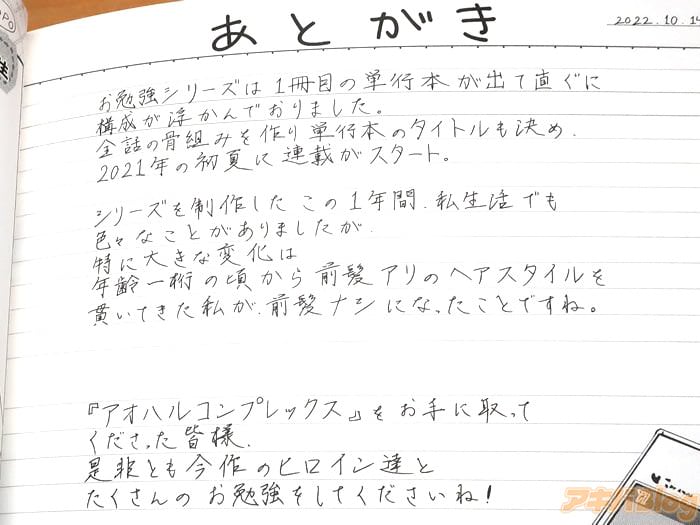 あとがき
2022.10.14
お勉強シリーズは1冊目の単行本が出て直ぐに
構成が浮かんでおりました。
全話の骨組みを作り単行本のタイトルも決め、
2021年の初夏に連載がスタート。
シリーズを制作したこの1年間、私生活でも
色々なことがありましたが、
特に大きな変化は
年齢一桁の頃から前髪アリのヘアスタイルを
貫いてきた私が、前髪ナシになったことですね。
『アオハルコンプレックス』をお手に取って
くださった皆様、
是非とも今作のヒロイン達と
たくさんのお勉強をしてくださいね!
アキバBlog